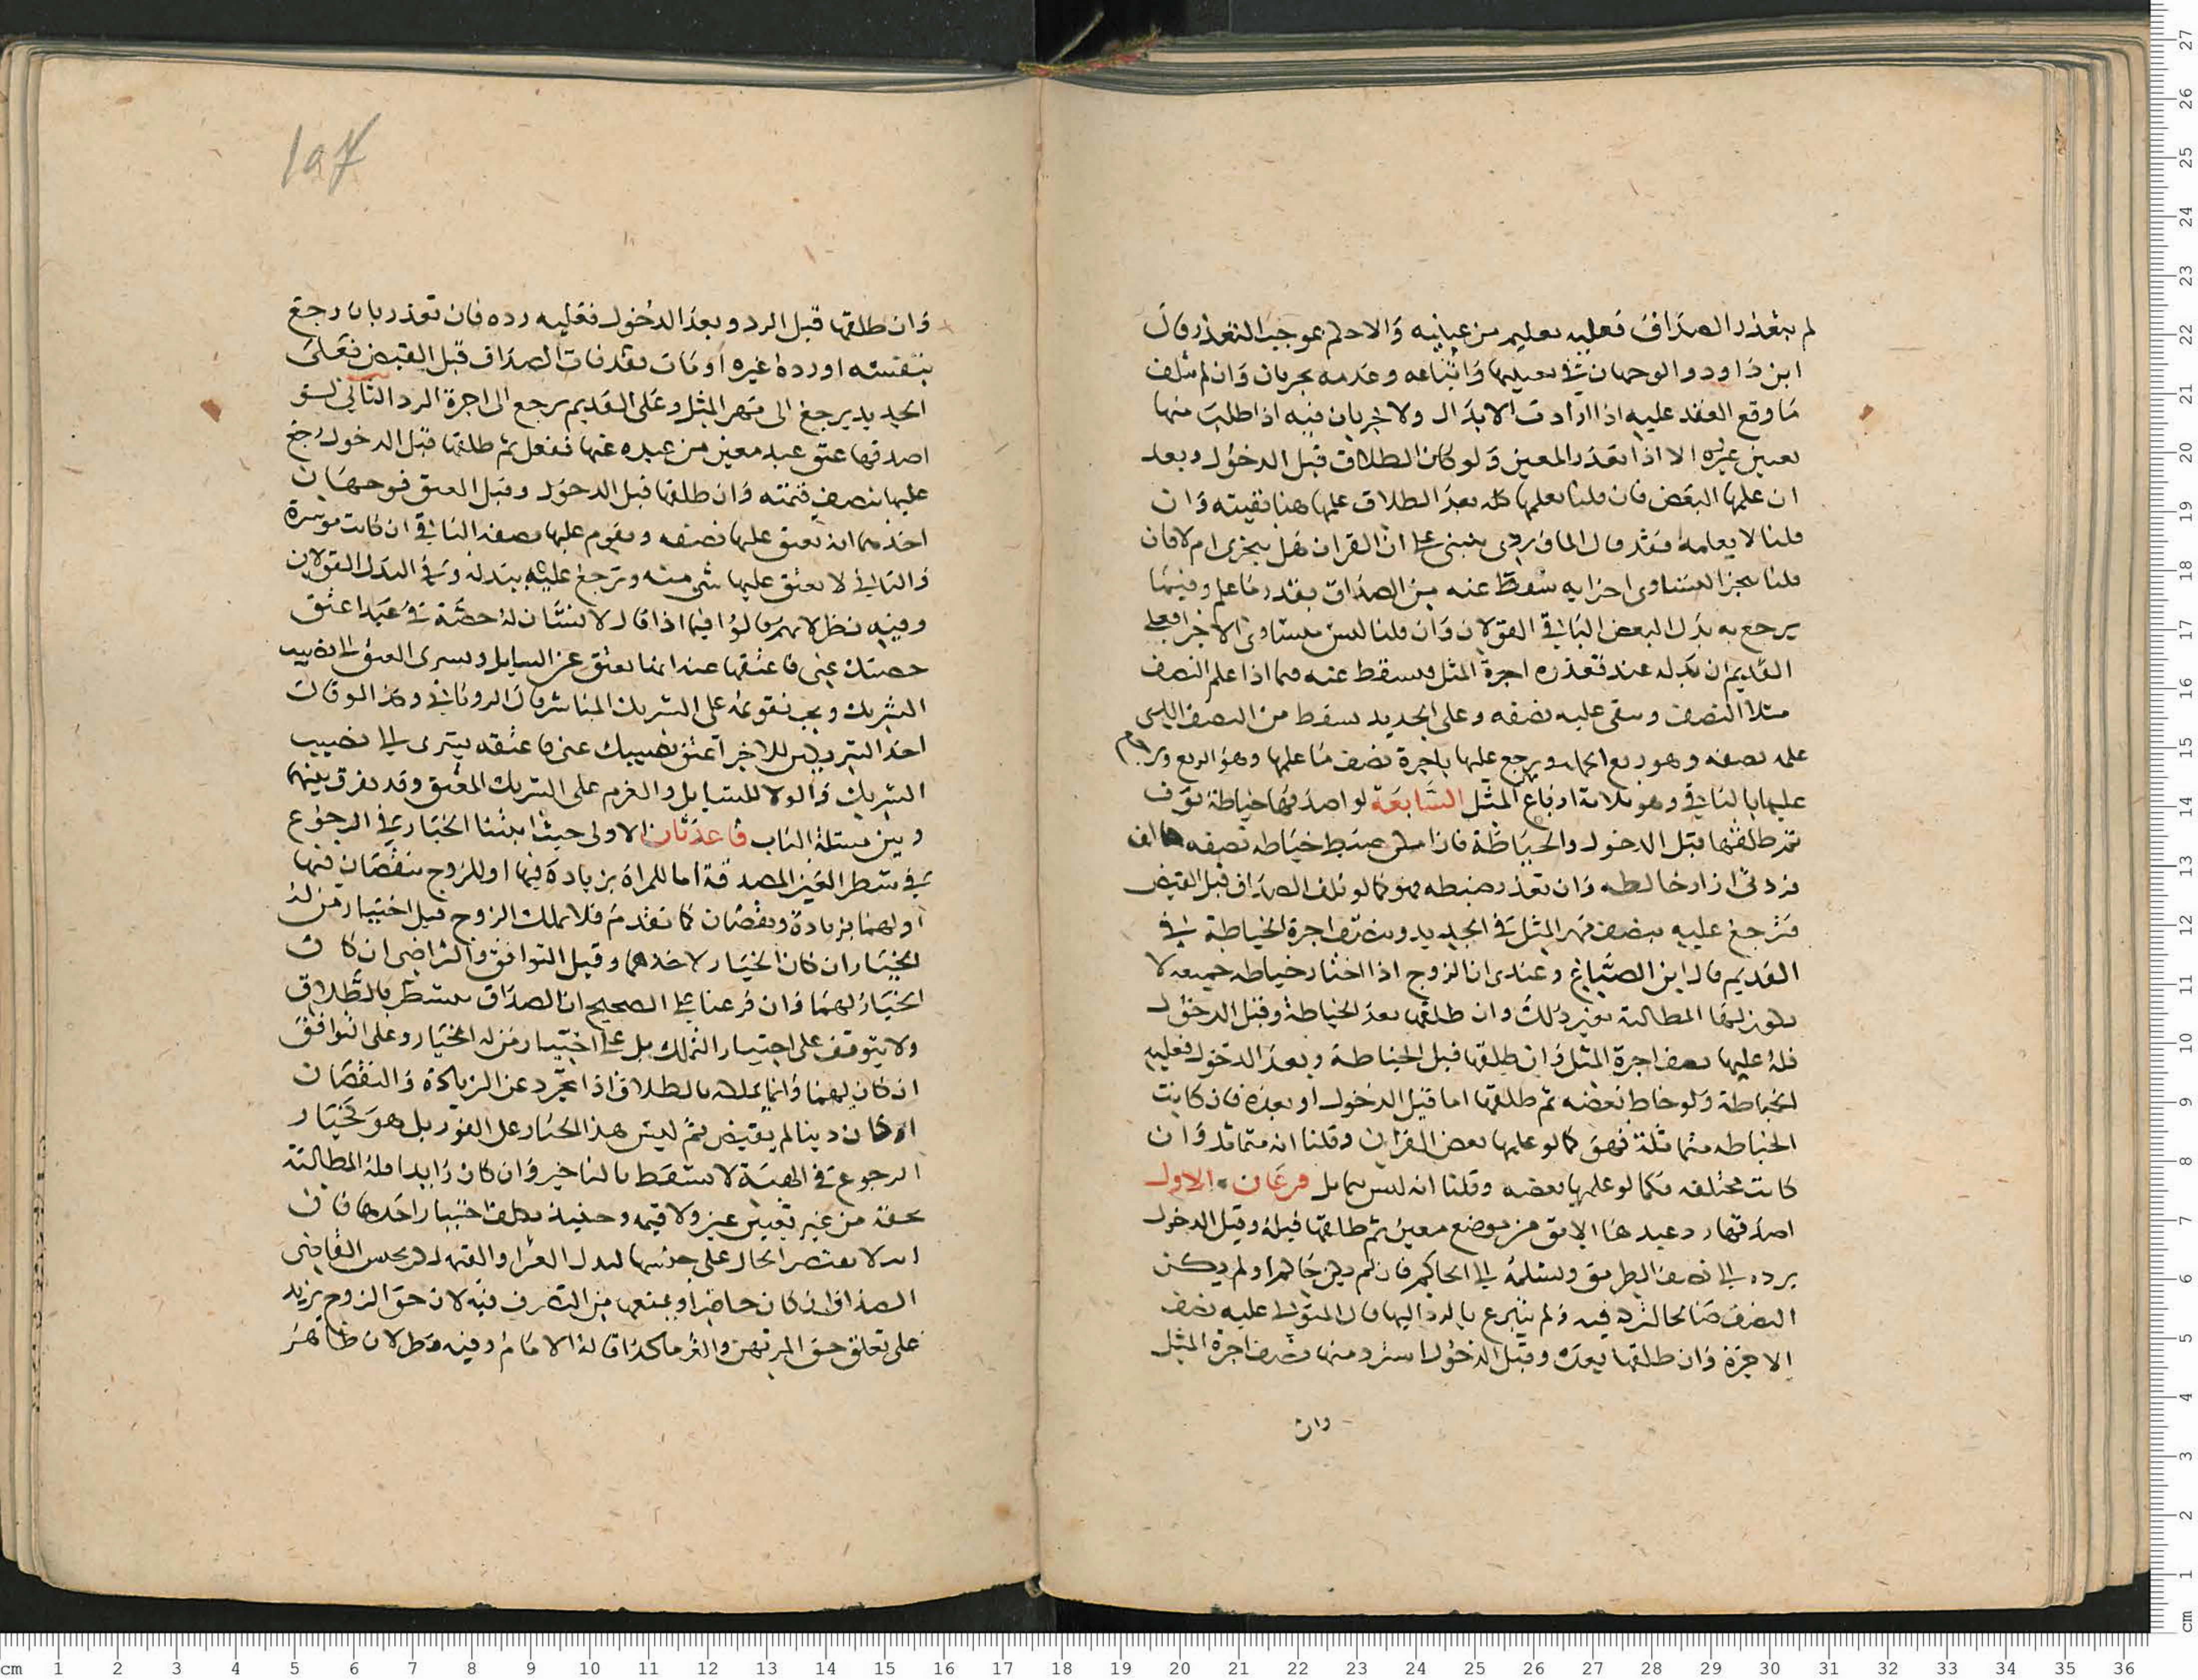 لم يتعذر الصداق فعليه تعليم من عيانيه والا حكم بموجب التعذر قال
ابن داود والوجهان في تعيينها واتباعه وعدمه يجريان وان لم يتلف
ما وقع العقد عليه اذا ارادت الابدال ولا يجريان فيه اذا طلب منها
تعيين غيره الا اذا تعذر المعين ولو كان الطلاق قبل الدخول وبعد
ان علمها البعض فان قلنا يعلمها كله بعد الطلاق علمها هنا بقيته وان
قلنا لا يعلمها فقد قال الماوردي ينبني على ان القران هل يتجزى ام لا فان
قلنا يتجزا لتساوي اجزايه سقط عنه من الصداق بقدر ما علم وفيما
يرجع به بدل البعض الباقي القولان وان قلنا ليس بمتساوي الاجزا فعلى
القديم ان بدله عند تعذره اجرة المثل فيسقط عنه فيما اذا علم النصف
مثلا النصف وبقي عليه نصفه وعلى الجديد سقط من النصف الذي
علمه نصفه وهو ربع الجملة ويرجع عليها باجرة نصف ما علمها وهو الربع وترجع
عليه بالباقي وهو ثلاثة ارباع المثل السابعة لو اصدقها خياطة ثوب
ثم طلقها قبل الدخول والخياطة فان امكن ضبط خياطة نصفه
وان تعذر ضبطه فهو كما لو تلف الصداق قبل القبض
فترجع عليه بنصف مهر المثل في الجديد وبنصف اجرة الخياطة في
القديم قال ابن الصباغ وعندي ان الزوج اذا اختار خياطة جميعه لا
يكون لها المطالبة بغير ذلك وان طلقها بعد الخياطة وقبل الدخول
فله عليها نصف اجرة المثل وان طلقها قبل الخياطة وبعد الدخول فعليه
الخياطة ولو خاط بعضه ثم طلقها اما قبل الدخول او بعده فان كانت
الخياطة متماثلة فهو كما لو علمها بعض القران وقلنا انه متماثل وان
كانت مختلفة فكما لو علمها بعضه وقلنا انه ليس بمماثل فرعان الاول
اصدقها رد عبدها الابق من موضع معين ثم طلقها قبله وقبل الدخول
يرده الى نصف الطريق ويسلمه الى الحاكم فان لم يكن حاكم او لم يكن
النصف صالحا لتركه فيه ولم يتبرع بالرد اليها قال المتولي عليه نصف
الاجرة وان طلقها بعده وقبل الدخول استرد منها نصف اجرة المثل
وان
١٥٧
وان طلقها قبل الرد وبعد الدخول فعليه رده فان تعذر بان رجع
بنفسه او رده غيره او مات فقد فات الصداق قبل القبض فعلى
الجديد يرجع الى مهر المثل وعلى القديم يرجع الى اجرة الرد الثاني لو
اصدقها عتق عبد معين من عبيده عنها ففعل ثم طلقها قبل الدخول رجع
عليها بنصف قيمته وان طلقها قبل الدخول وقبل العتق فوجهان
احدهما انه يعتق عليها نصفه ويقوم عليها نصفه الباقي ان كانت موسرة
والثاني لا يعتق عليها شي منه وترجع عليه ببدله وفي البدل القولان
وفيه نظر لانهم قالوا فيما اذا قال لانسان له حصة في عبد اعتق
حصتك عني فاعتقها عنه انما يعتق عن السايل ويسري العتق الى نصيب
الشريك ويجب تقويمه على الشريك المباشر قال الروياني وكذا لو قال
احد الشريكين للاخر اعتق نصيبك عني فاعتقه يسري الى نصيب
الشريك والولا للسايل والغرم على الشريك المعتق وقد يفرق بينهما
وبين مسئلة الباب قاعدتان الاولى حيث اثبتنا الخيار في الرجوع
في شطر العين المصدقة اما للمراة بزيادة فيها او للزوج بنقصان فيها
او لهما بزيادة ونقصان كما تقدم فلا يملك الزوج قبل اختيار من له
الخيار ان كان الخيار لاحدهما وقبل التوافق والتراضي ان كان
الخيار لهما وان فرعنا على الصحيح ان الصداق يتشطر بالطلاق
ولا يتوقف على اختيار التملك بل على اختيار من له الخيار وعلى التوافق
ان كان لهما وانما يملك بالطلاق اذا تجرد عن الزيادة والنقصان
او كان دينا لم يقبض ثم ليس هذا الخيار على الفور بل هو كخيار
الرجوع في الهبة لا يسقط بالتاخير وان كان زايدا فله المطالبة
بحقه من غير تعيين عين ولا قيمة وحينئذ يكلف اختيار احدهما فان
القاضي
الصداق ان كان حاضرا ويمنعها من التصرف فيه لان حق الزوج يزيد
على تعلق حق المرتهن والغرما كذا قاله الامام وفيه نظر لان ظاهر